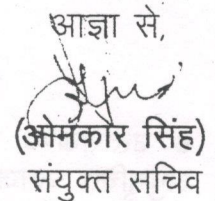 आज्ञा से,
(ओमकार सिंह)
संयुक्त सचिव